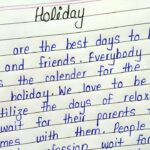 Holiday
are the best days to
and friends. Everybody
s the calender for the
holiday. We love to be
tilize the days of relax
wait for their parents
mes with them. People
wait for